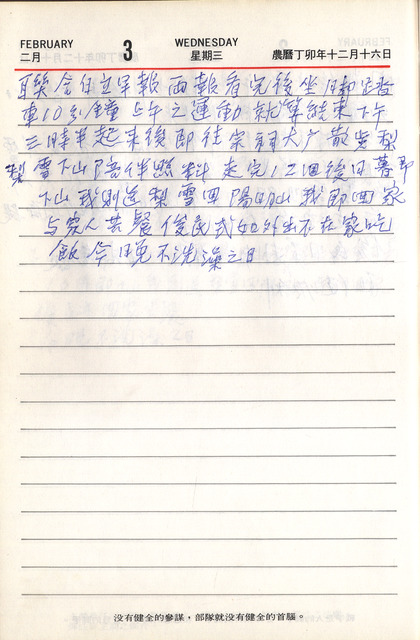 FEBRUARY 3 WEDNESDAY
二月 星期三 農曆丁卯年十二月十六日
聯合自立早報兩報看完後坐腳踏
車10分鐘上午之運動就算結束下午
三時半起來後即往宗祠大广散步梨
梨雪下山陪伴照料走完12回後日暮即
下山我則送梨雪回陽明山我即回家
与家人共餐俊民式如外出不在家吃
飯今晚不洗澡之日
没有健全的參謀，部隊就没有健全的首腦。